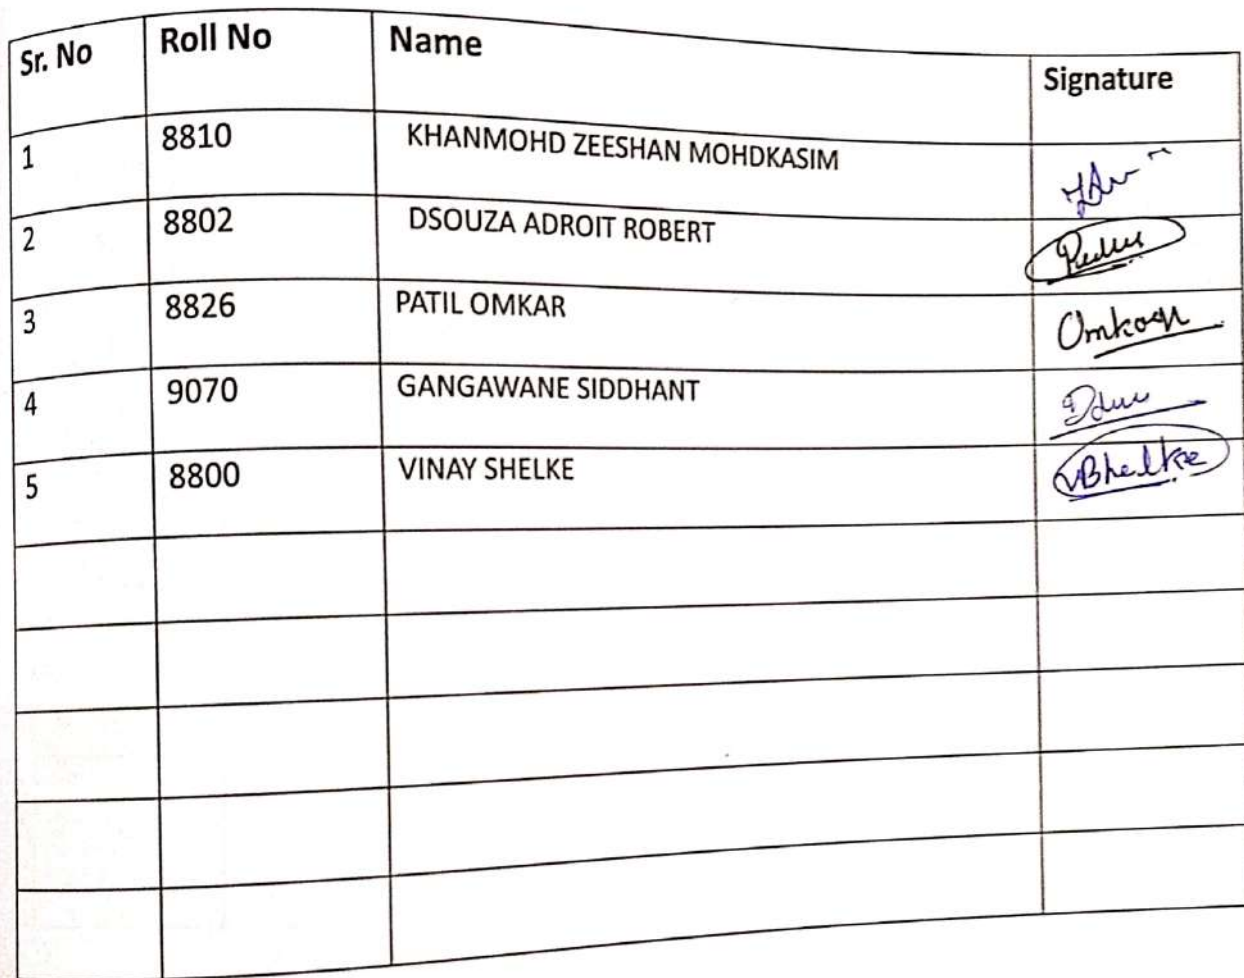 Sr. No Roll No Name Signature
1 8810 KHANMOHD ZEESHAN MOHDKASIM
2 8802 DSOUZA ADROIT ROBERT
3 8826 PATIL OMKAR Omkar
4 9070 GANGAWANE SIDDHANT
5 8800 VINAY SHELKE